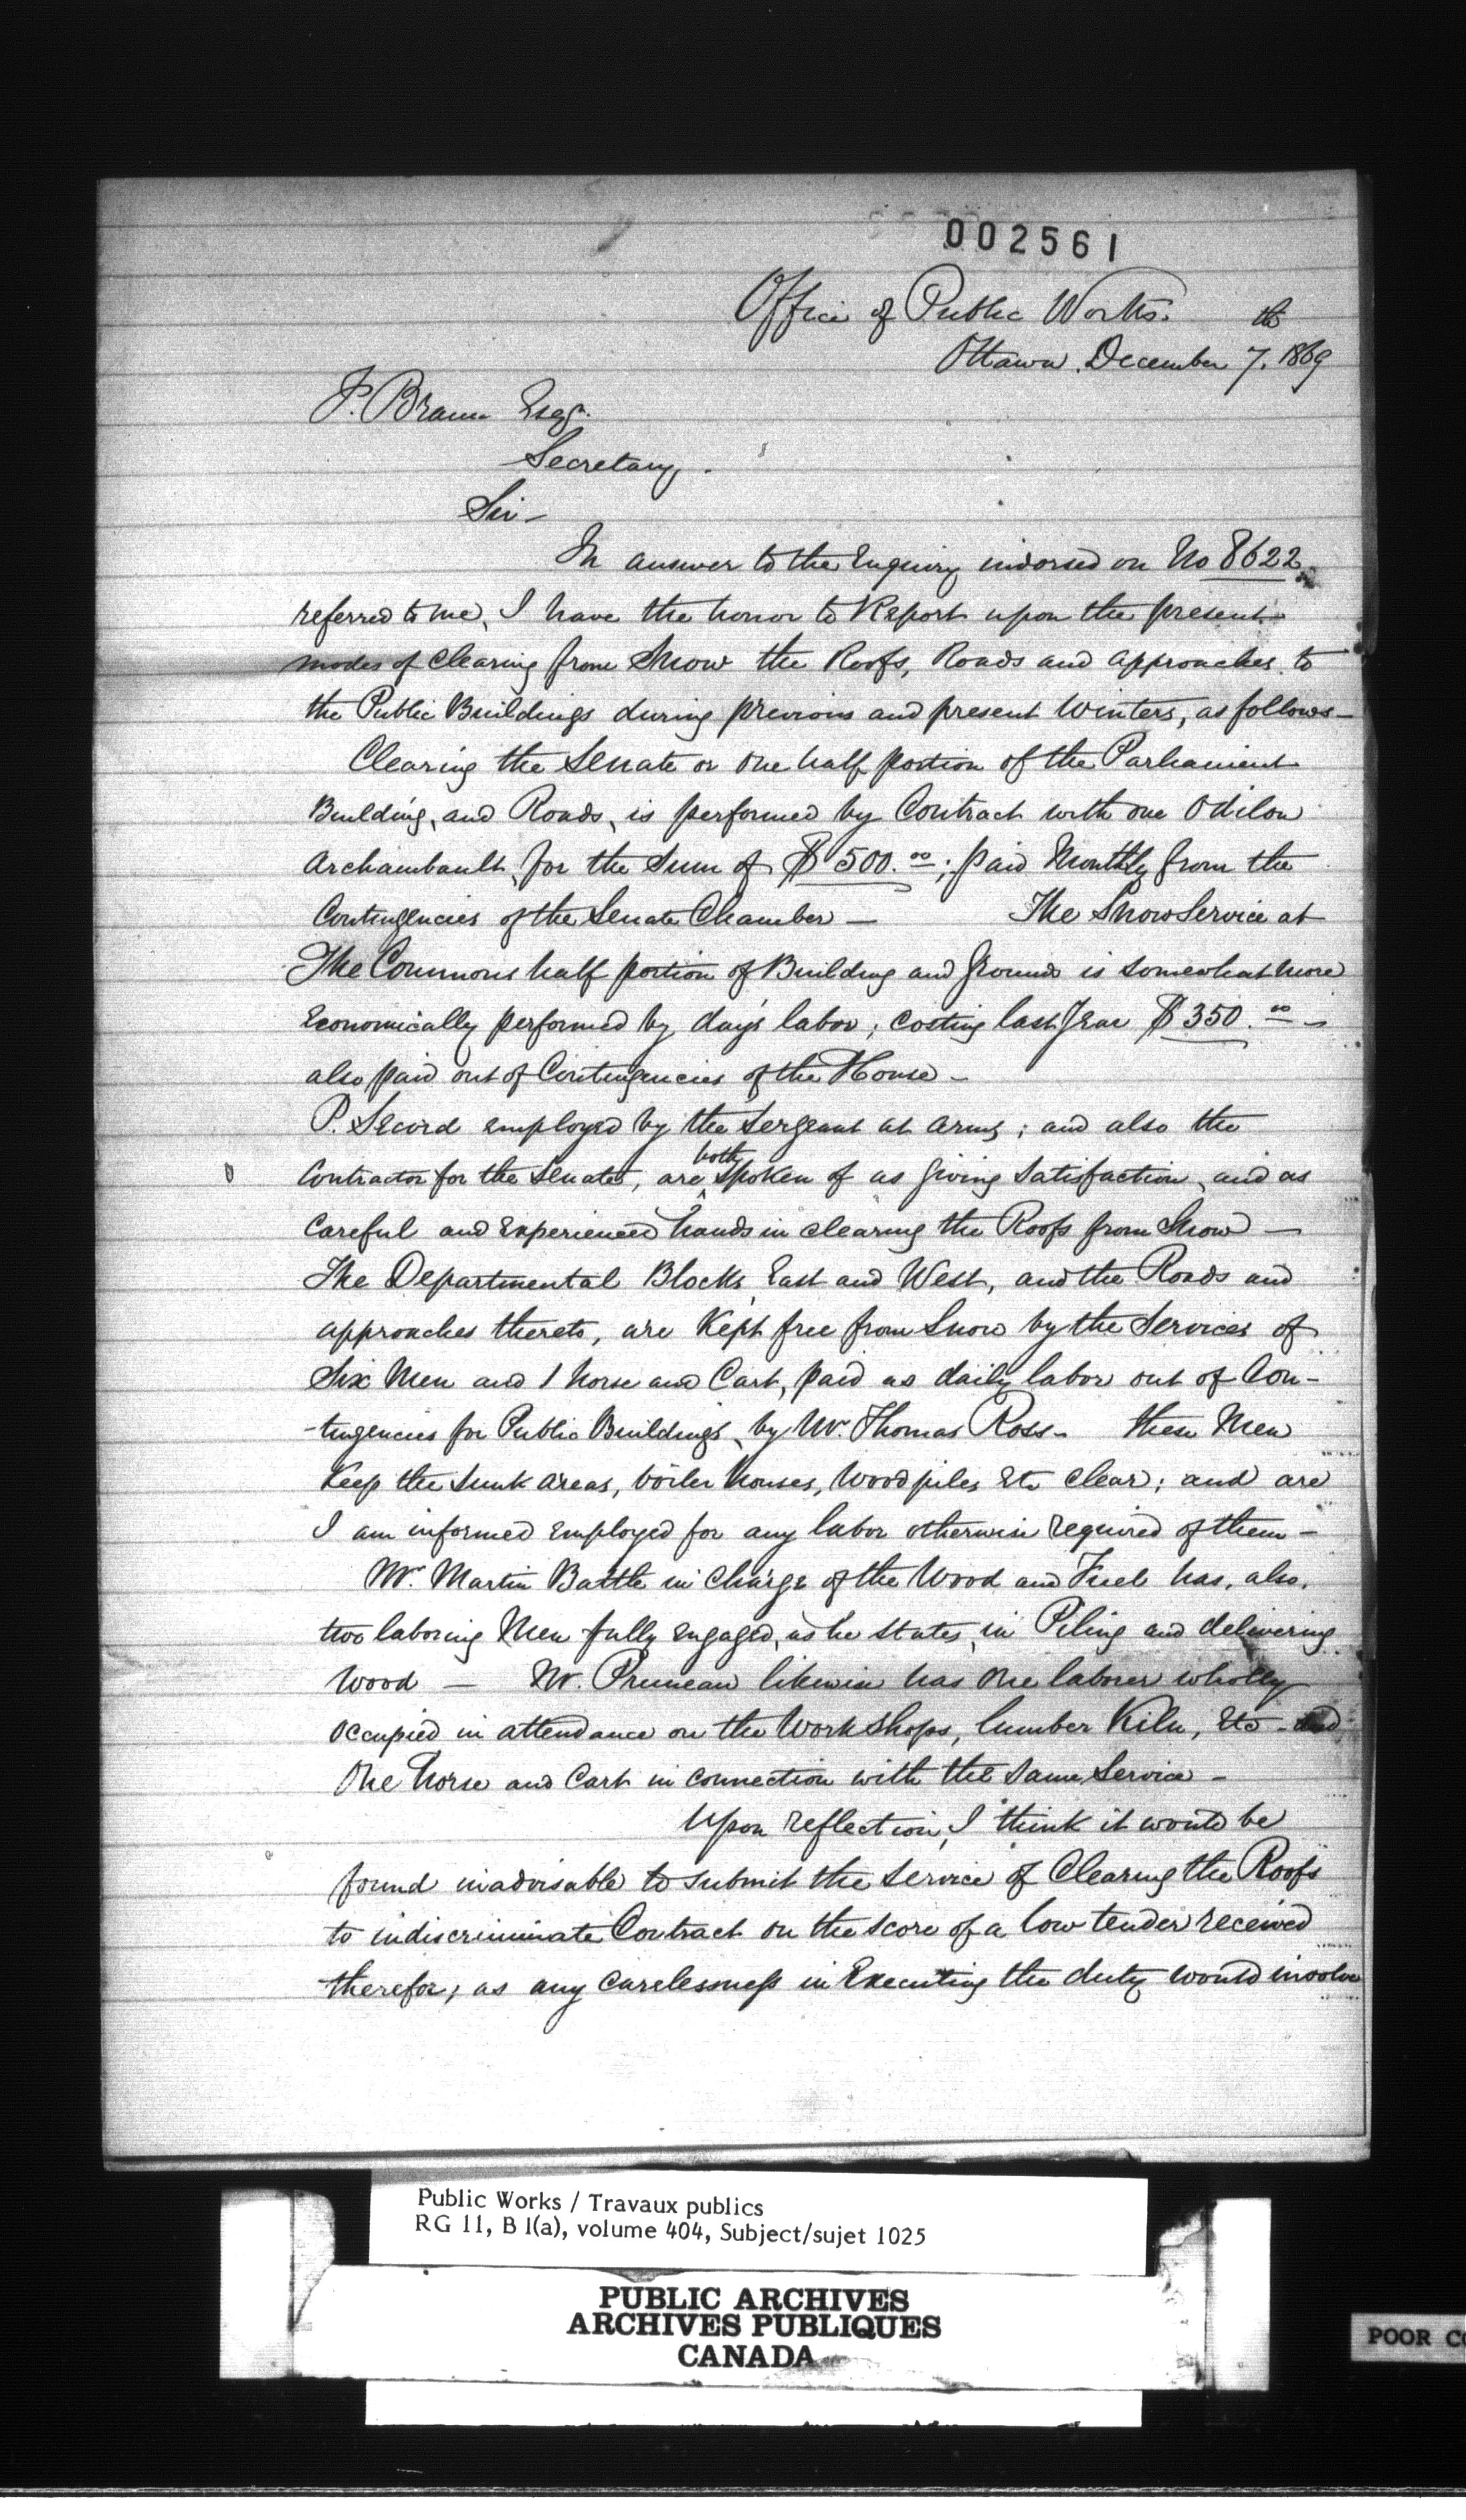 002561
Office of Public Works.
Ottawa. December 7th. 1869
F. Braun Esqr.
Secretary.
Sir-
In answer to the Enquiry indorsed on No 8622
referred to me, I have the honor to Report upon the present
modes of Clearing from Snow the Roofs, Roads and approaches to
the Public Buildings during previous and present Winters, as follows-
Clearing the Senate or one half portion of the Parliament
Building, and Roads, is performed by Contract with one Odilon
Archambault, for the Sum of $500.00; paid Monthly from the
Contingencies of the Senate Chamber — The Snow Service at
The Commons half portion of Building and Grounds is somewhat more
Economically performed by day's labor; Costing last Year $350.00 -
also paid out of Contingencies of the House -
P. Secord employed by the Sergeant at Arms; and also the
Contractor for the Senate, are both spoken of as giving Satisfaction, and as
Careful and Experienced hands in clearing the Roofs from Snow —
The Departmental Blocks, East and West, and the Roads and
approaches thereto, are Kept free from Snow by the Services of
Six Men and 1 horse and Cart, paid as daily labor out of Con-
-tingencies for Public Buildings, by Mr. Thomas Ross - these Men
Keep the sunk areas, boiler houses, Wood piles &c clear; and are
I am informed employed for any labor otherwise required of them -
Mr. Martin Battle in Charge of the Wood and Fuel has, also,
two laboring Men fully engaged, as he states, in Piling and delivering
Wood — Mr. Pruneau likewise has one laborer wholly
occupied in attendance on the Work Shops, lumber Kiln, &c - and
One horse and Cart in connection with the same Service -
Upon reflection, I think it would be
found inadvisable to submit the service of Clearing the Roofs
to indiscriminate Contract on the score of a low tender received
therefor; as any carelessness in Executing the duty would involve
Public Works / Travaux publics
RG 11, B 1(a), volume 404, Subject/sujet 1025
PUBLIC ARCHIVES
ARCHIVES PUBLIQUES
CANADA
POOR CO